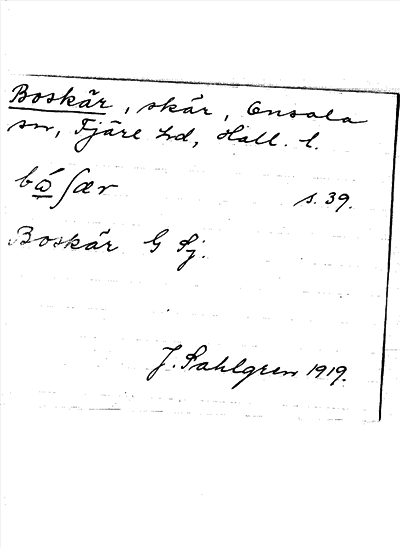 Boskär, skär, Onsala
sn, Fjäre hd, Hall. l.
s. 39.
Boskär G Sj.
J. Sahlgren 1919.